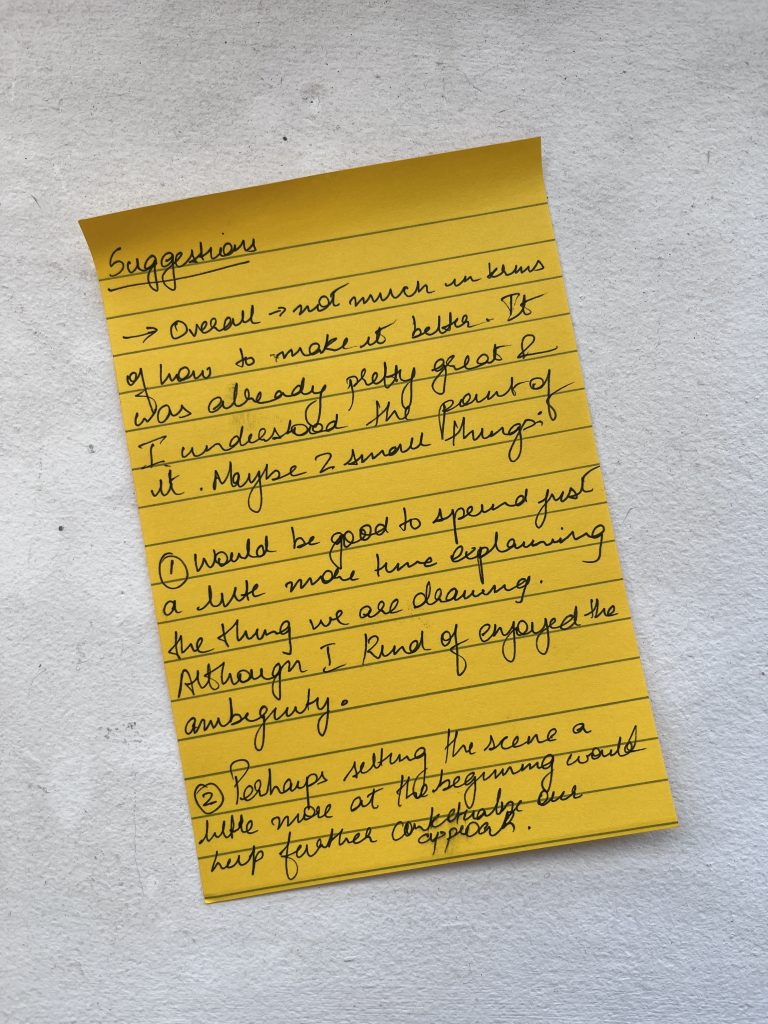 Suggestions
→ Overall → not much in terms
of how to make it better. It
was already pretty great &
I understood the point of
it. Maybe 2 small things:
① Would be good to spend just
a little more time explaining
the thing we are drawing.
Although I kind of enjoyed the
ambiguity.
② Perhaps setting the scene a
little more at the beginning would
help further contextualize our
approach.